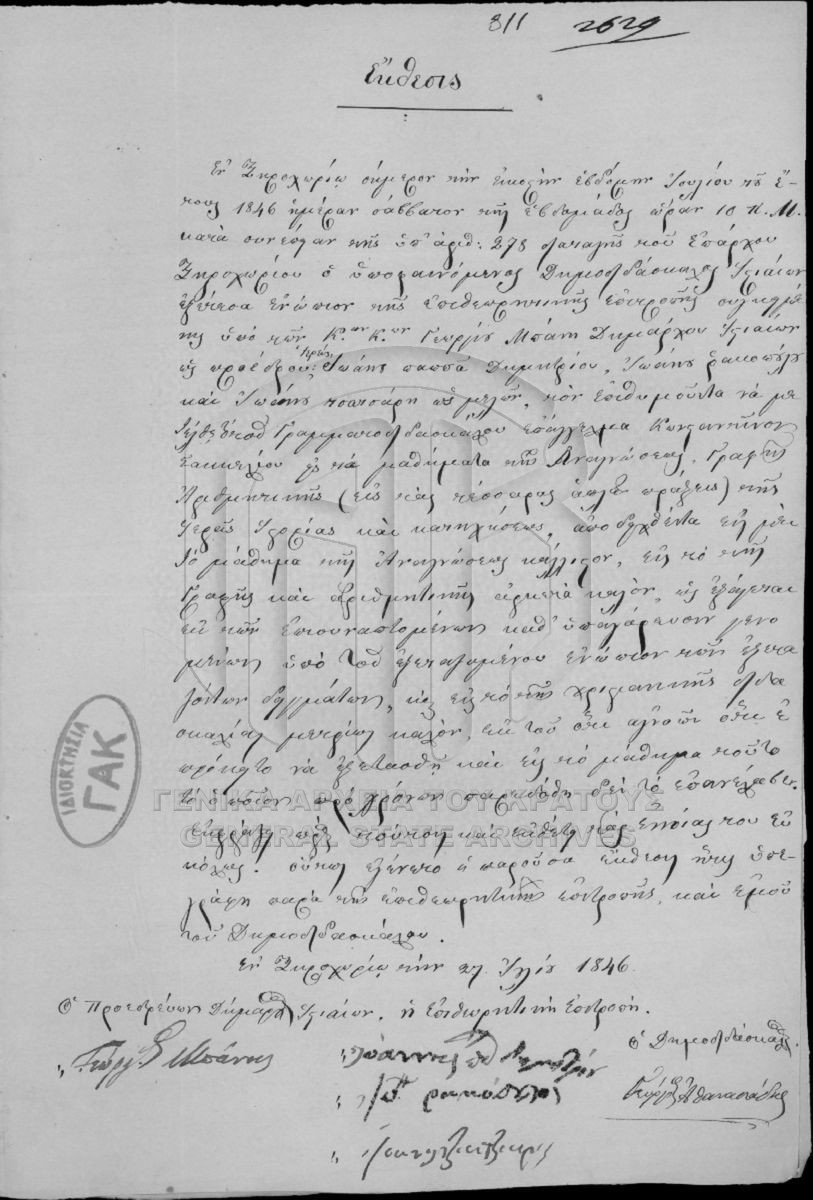 811 2629
Ἔκθεσις
Ἐν Ξηροχωρίῳ σήμερον τὴν εἰκοστὴν ἑβδόμην Ἰουλίου τοῦ ἔ-
τους 1846 ἡμέραν σάββατον τῆς ἑβδομάδος ὥραν 10 π. Μ.
κατὰ συνέπειαν τῆς ὑπ' ἀριθ: 278 διαταγῆς τοῦ Ἐπάρχου
Ξηροχωρίου ὁ ὑποφαινόμενος Δημοδιδάσκαλος Ἱστιαίων
ἐξέτασα ἐνώπιον τῆς ἐπιθεωρητικῆς ἐπιτροπῆς
της ὑπὸ τῶν Κ.ων Κ.ων Γεωργίου Μπάνη Δημάρχου Ἱστιαίων
ὡς προέδρου, Ἰωάννη παππᾶ Δημητρίου, Ἰωάννη
καὶ Ἰωάννη ὡς μελῶν, τὸν ἐπιθυμοῦντα νὰ με
Γραμματοδιδασκάλου ἐπάγγελμα Κωνσταντῖνον
εἰς τὰ μαθήματα τῆς Ἀναγνώσεως, Γραφῆς
Ἀριθμητικῆς (εἰς τὰς τέσσαρας ἁπλᾶς πράξεις) τῆς
Ἱερᾶς Ἱστορίας καὶ κατηχήσεως, ἀποδειχθέντα εἰς μὲν
τὸ μάθημα τῆς Ἀναγνώσεως κάλλιστον, εἰς τὸ τῆς
Γραφῆς καὶ ἀριθμητικῆς ἀρκετὰ καλὸν, ὡς ἐξάγεται
ἐκ τῶν ἐπισυναπτομένων καθ' ὑπαγόρευσιν γενο
μένων ὑπὸ τοῦ ἐξεταζομένου ἐνώπιον τῶν ἐξετα
ζόντων δειγμάτων, καὶ εἰς τὸ τῆς χριστιανικῆς διδα
σκαλίας μετρίως καλὸν, ἐκ τοῦ ὅτι
νὰ ἐξετασθῇ καὶ εἰς τὸ μάθημα τοῦτο
τὸ ὁποῖον πρὸ χρόνων
πρὸς τούτοις καὶ ἐκθέτει τὰς ἐννοίας του εὐ
κόλως. οὕτω ἐγένετο ἡ παροῦσα ἔκθεσις ἥτις ὑπε-
γράφη παρὰ τῆς ἐπιθεωρητικῆς ἐπιτροπῆς, καὶ ἐμοῦ
τοῦ Δημοδιδασκάλου.
Ἐν Ξηροχωρίῳ τὴν 27 Ἰουλίου 1846
Ὁ Προεδρεύων Δήμαρχος Ἱστιαίων. ἡ Ἐπιθεωρητικὴ Ἐπιτροπή.
ὁ Δημοδιδάσκαλος
Γεώργιος Μπάνης
Ἰωάννης Δημητρίου
Γεώργιος Ἀθανασιάδης
ΙΔΙΟΚΤΗΣΙΑ
ΓΑΚ
ΓΕΝΙΚΑ ΑΡΧΕΙΑ ΤΟΥ ΚΡΑΤΟΥΣ
GENERAL STATE ARCHIVES